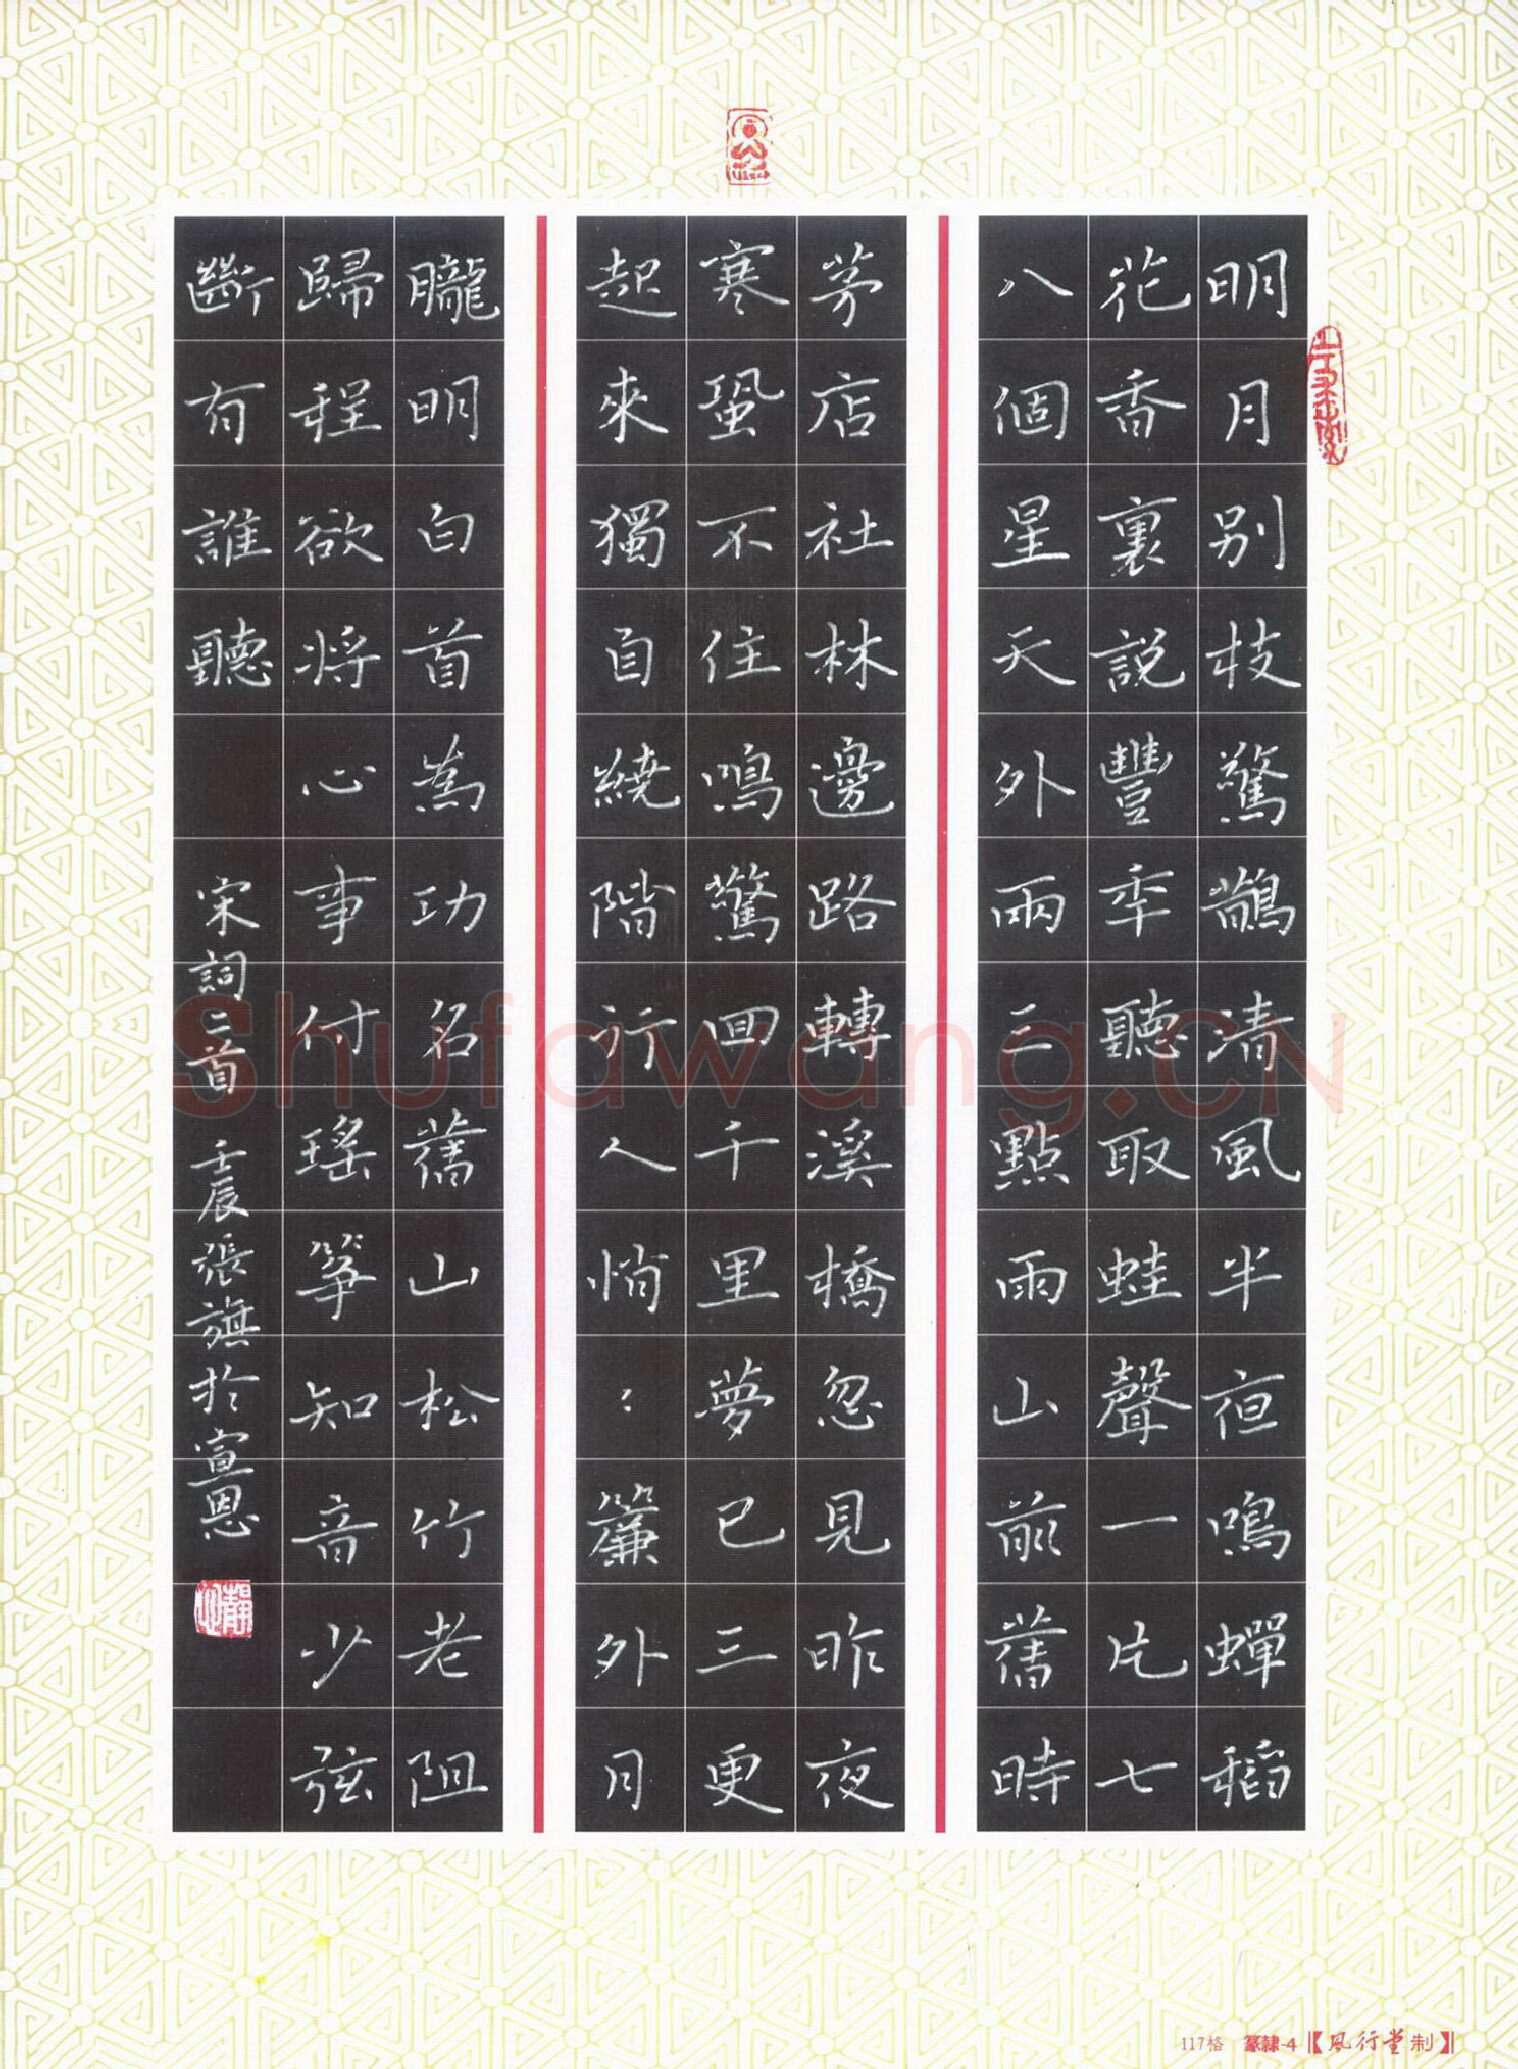 明月别枝驚鵲清風半夜鳴蟬稻
花香裏説豐年聽取蛙聲一片七
八個星天外兩三點雨山前舊時
茅店社林邊路轉溪橋忽見昨夜
寒蛩不住鳴驚回千里夢已三更
起來獨自繞階行人悄：簾外月
朧明白首為功名舊山松竹老阻
歸程欲將心事付瑤箏知音少弦
斷有誰聽
宋詞二首 壬辰張旗於宣恩
Shufawang.CN
117格 篆隸-4 【風行堂制】